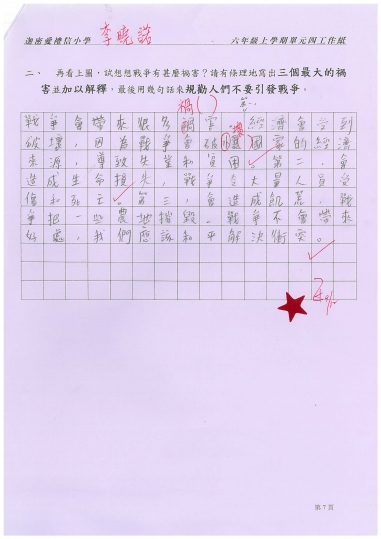 迦密愛禮信小學 李曉諾 六年級上學期單元四工作紙
二、 再看上圖,試想想戰爭有甚麼禍害?請有條理地寫出三個最大的禍
害並加以解釋,最後用幾句話來規勸人們不要引發戰爭。
禍( ) 第一,
戰爭會帶來很多禍害。經濟會受到
破壞,因為戰爭會破壞國家的經濟
來源,導致失業和貧困。第二,會
造成生命損失,戰爭令大量人員受
傷和死亡。第三,會造成飢荒,戰
爭把一些農地摧毀。戰爭不會帶來
好處,我們應該和平解決衝突。
第7頁